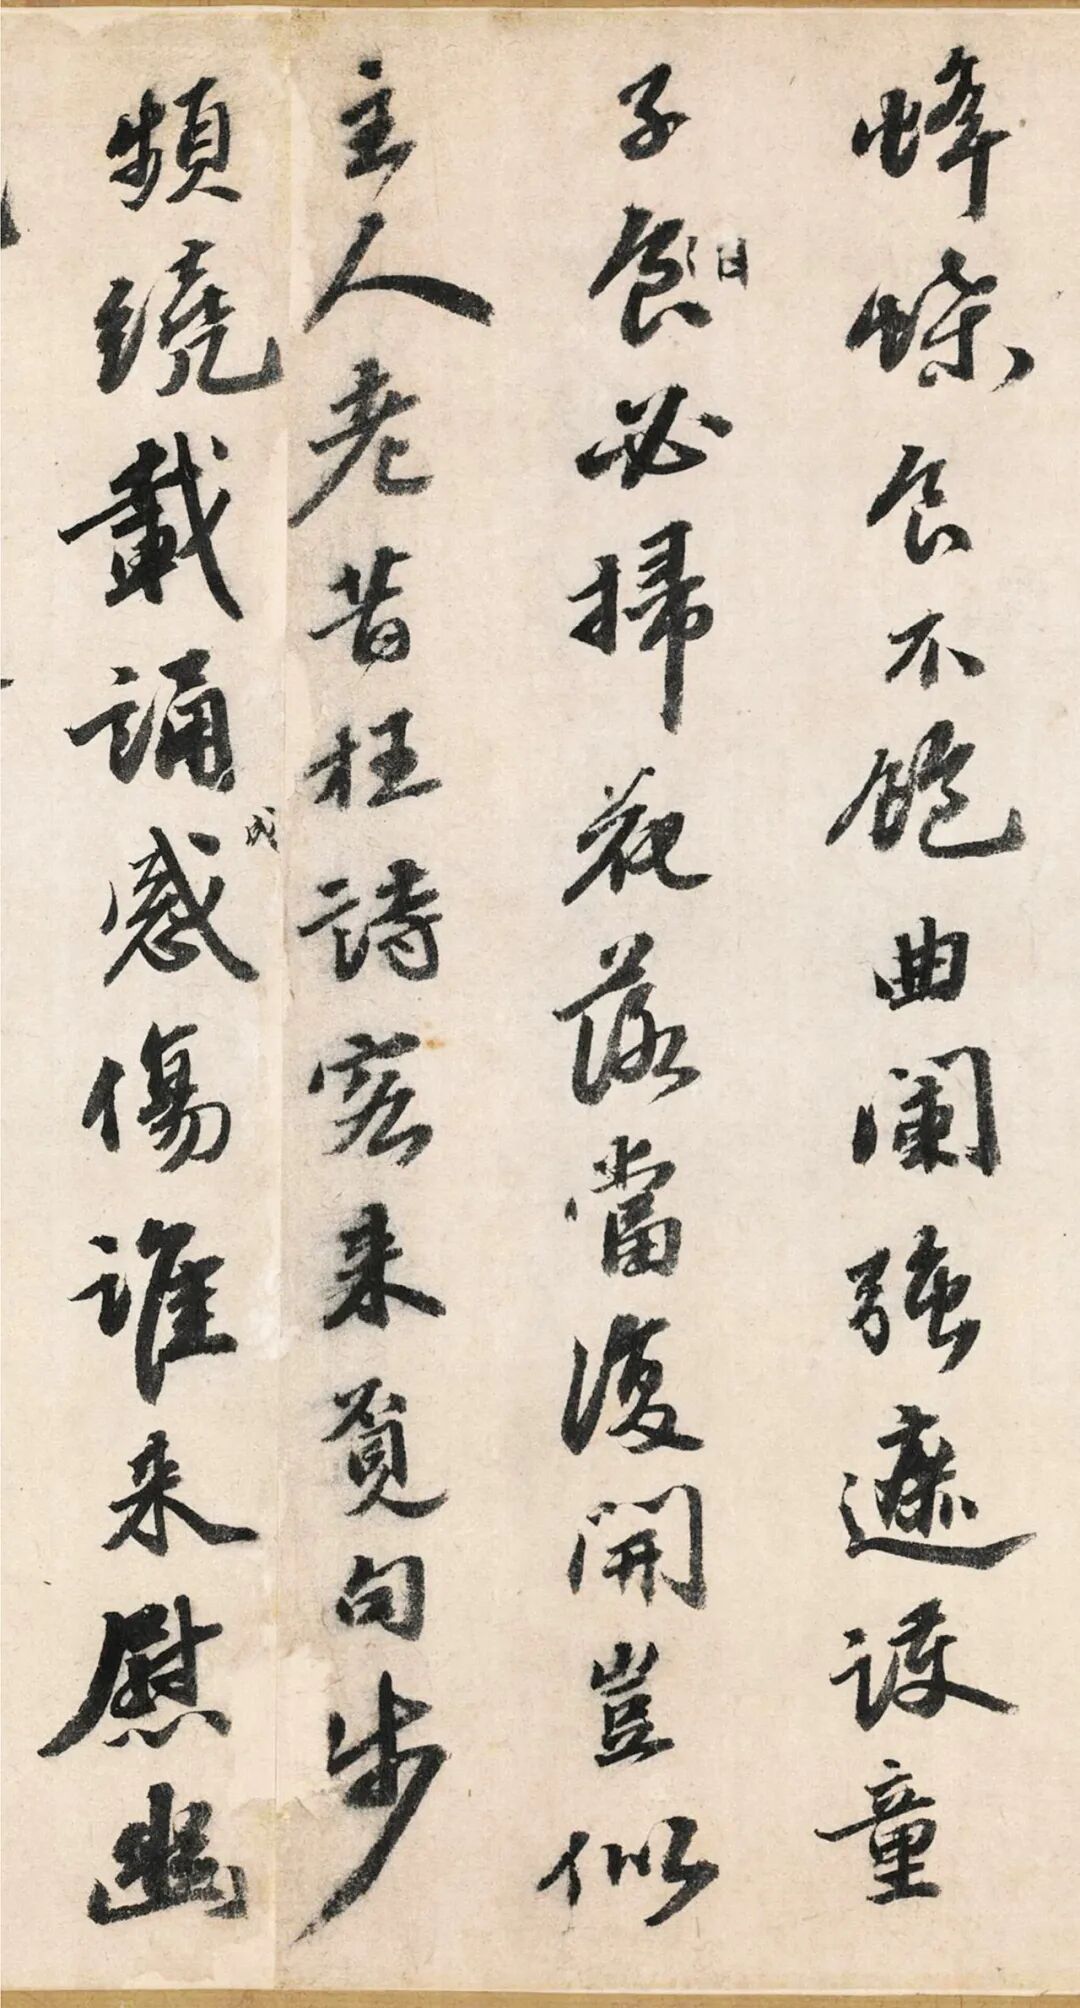 蜂蝶食不飽曲闌強遮護童
子食日必掃花落當復開豈似
主人老昔枉詩客来覓句步
頻繞載誦成感傷誰来慰幽